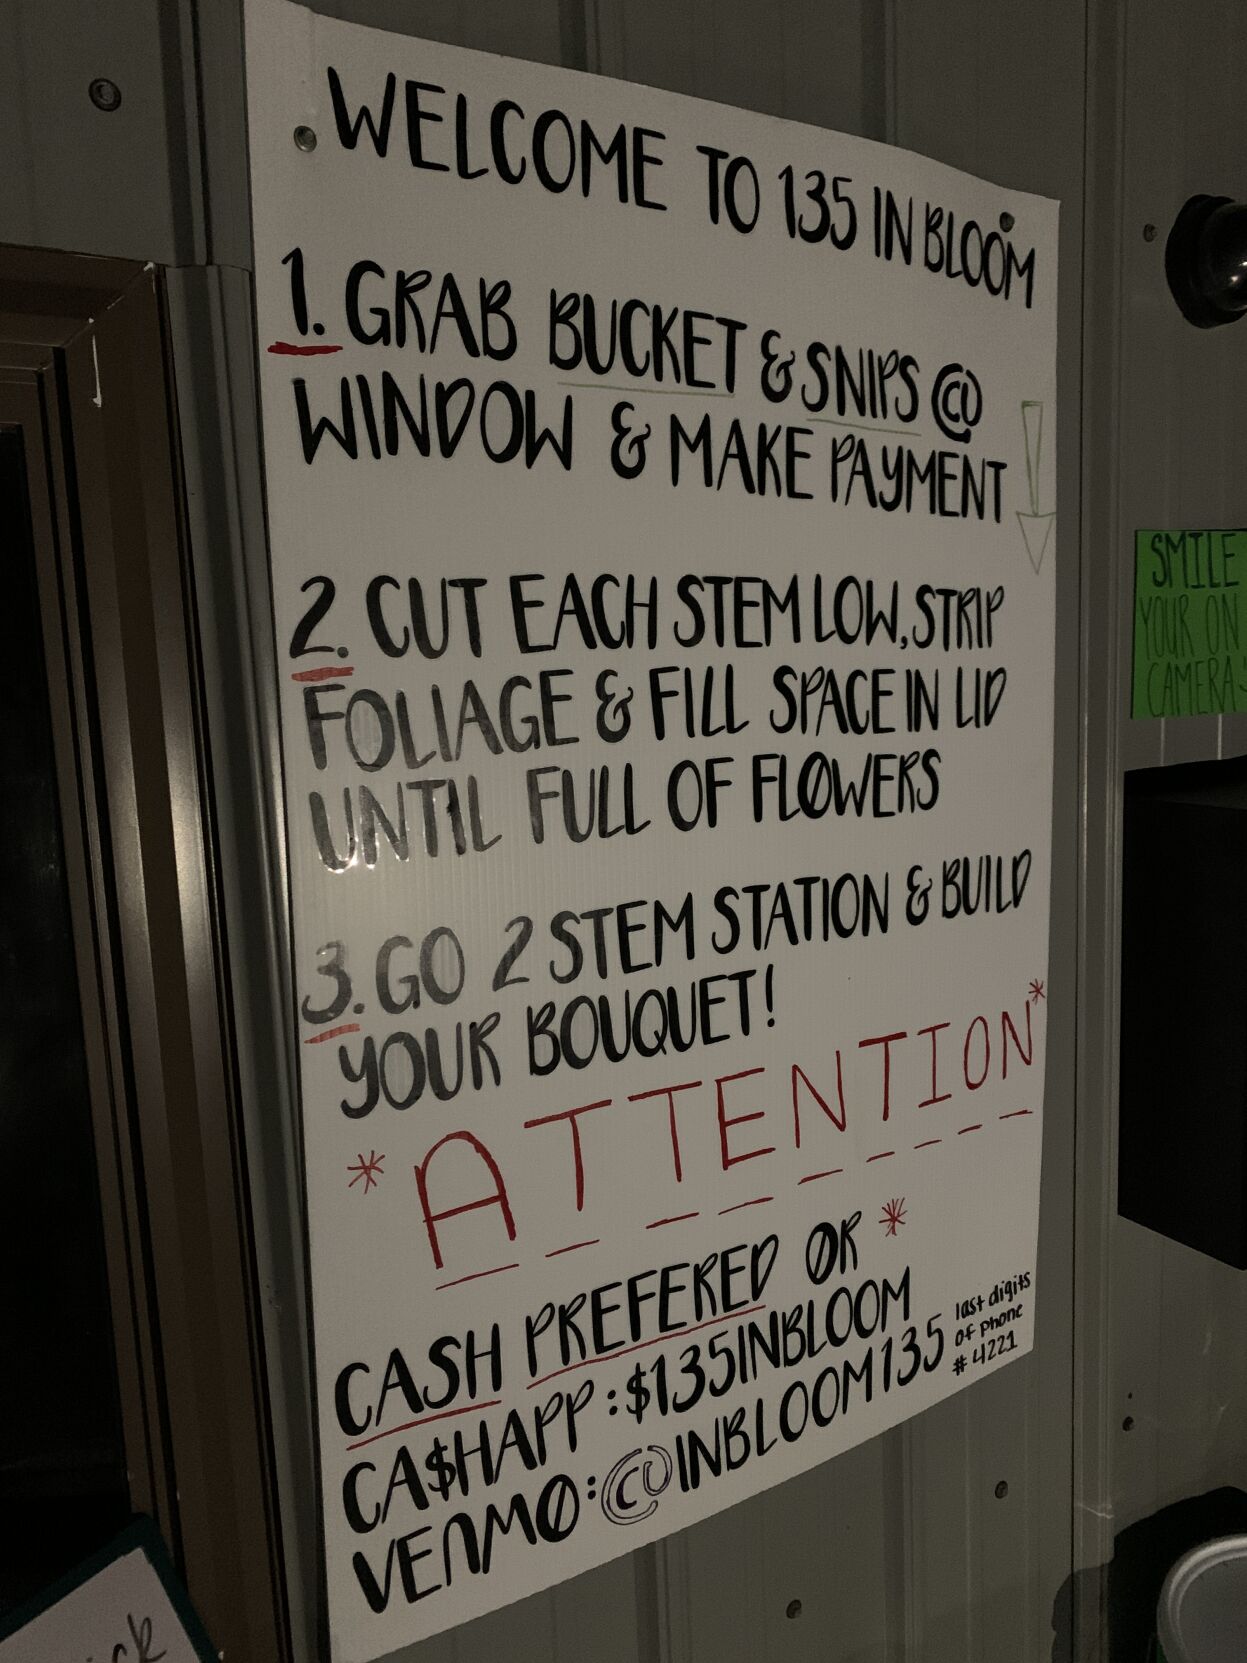 WELCOME TO 135 IN BLOOM
1. GRAB BUCKET & SNIPS @
WINDOW & MAKE PAYMENT
2. CUT EACH STEM LOW, STRIP
FOLIAGE & FILL SPACE IN LID
UNTIL FULL OF FLOWERS
3. GO 2 STEM STATION & BUILD
YOUR BOUQUET!
*ATTENTION*
CASH PREFERED OR *
CA$HAPP: $135INBLOOM
VENMO: @INBLOOM135
last digits
of phone
# 4221
SMILE
YOUR ON
CAMERA